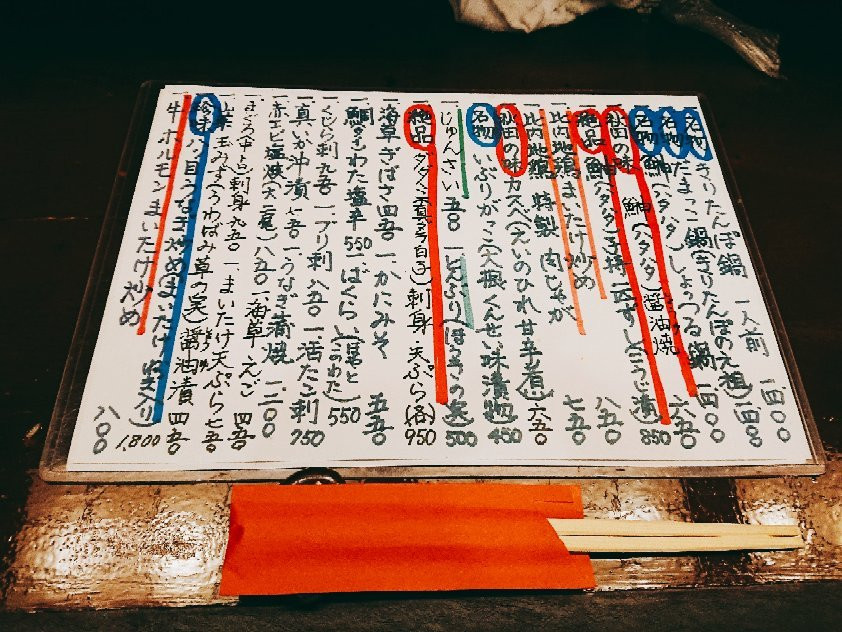 名物 きりたんぽ鍋 一人前 一、四〇〇
名物 だまっこ鍋(きりたんぽの元祖)一、四〇〇
名物 鰰(ハタハタ)しょっつる鍋 一、四〇〇
秋田の味 鰰(ハタハタ)醤油焼 六五〇
絶品 鰰(ハタハタ)子持一匹ずし(こうじ漬) 850
比内地鶏 まいたけ炒め 八五〇
比内地鶏 特製 肉じゃが 七五〇
秋田の味 カスベ(えいのひれ甘辛煮) 六五〇
名物 いぶりがっこ(大根くんせい味漬物) 450
一、じゅんさい 五〇 一、とんぶり(ほうき草の実) 500
一、絶品 ダダミ(真鱈白子)刺身・天ぷら(各) 950
一、海草ぎばさ 四五〇 一、かにみそ 五五〇
一、鯛わた塩辛 550 一、ばくらい(ほやとこのわた) 550
一、くじら刺 九五〇 一、ブリ刺 八五〇 一、活たこ刺 750
一、真いか沖漬 七五〇 一、うなぎ蒲焼 一、二〇〇
一、赤エビ塩焼(大二尾) 八五〇 一、海草・えご 四五〇
一、まぐろ(中とろ)刺身 九五〇 一、まいたけ天ぷら 七五〇
一、山菜 みず(うわばみ草の実)醤油漬 四五〇
珍味 八目うなぎ炒め(まいたけ ねぎ入り) 1,800
一、牛ホルモンまいたけ炒め 八〇〇